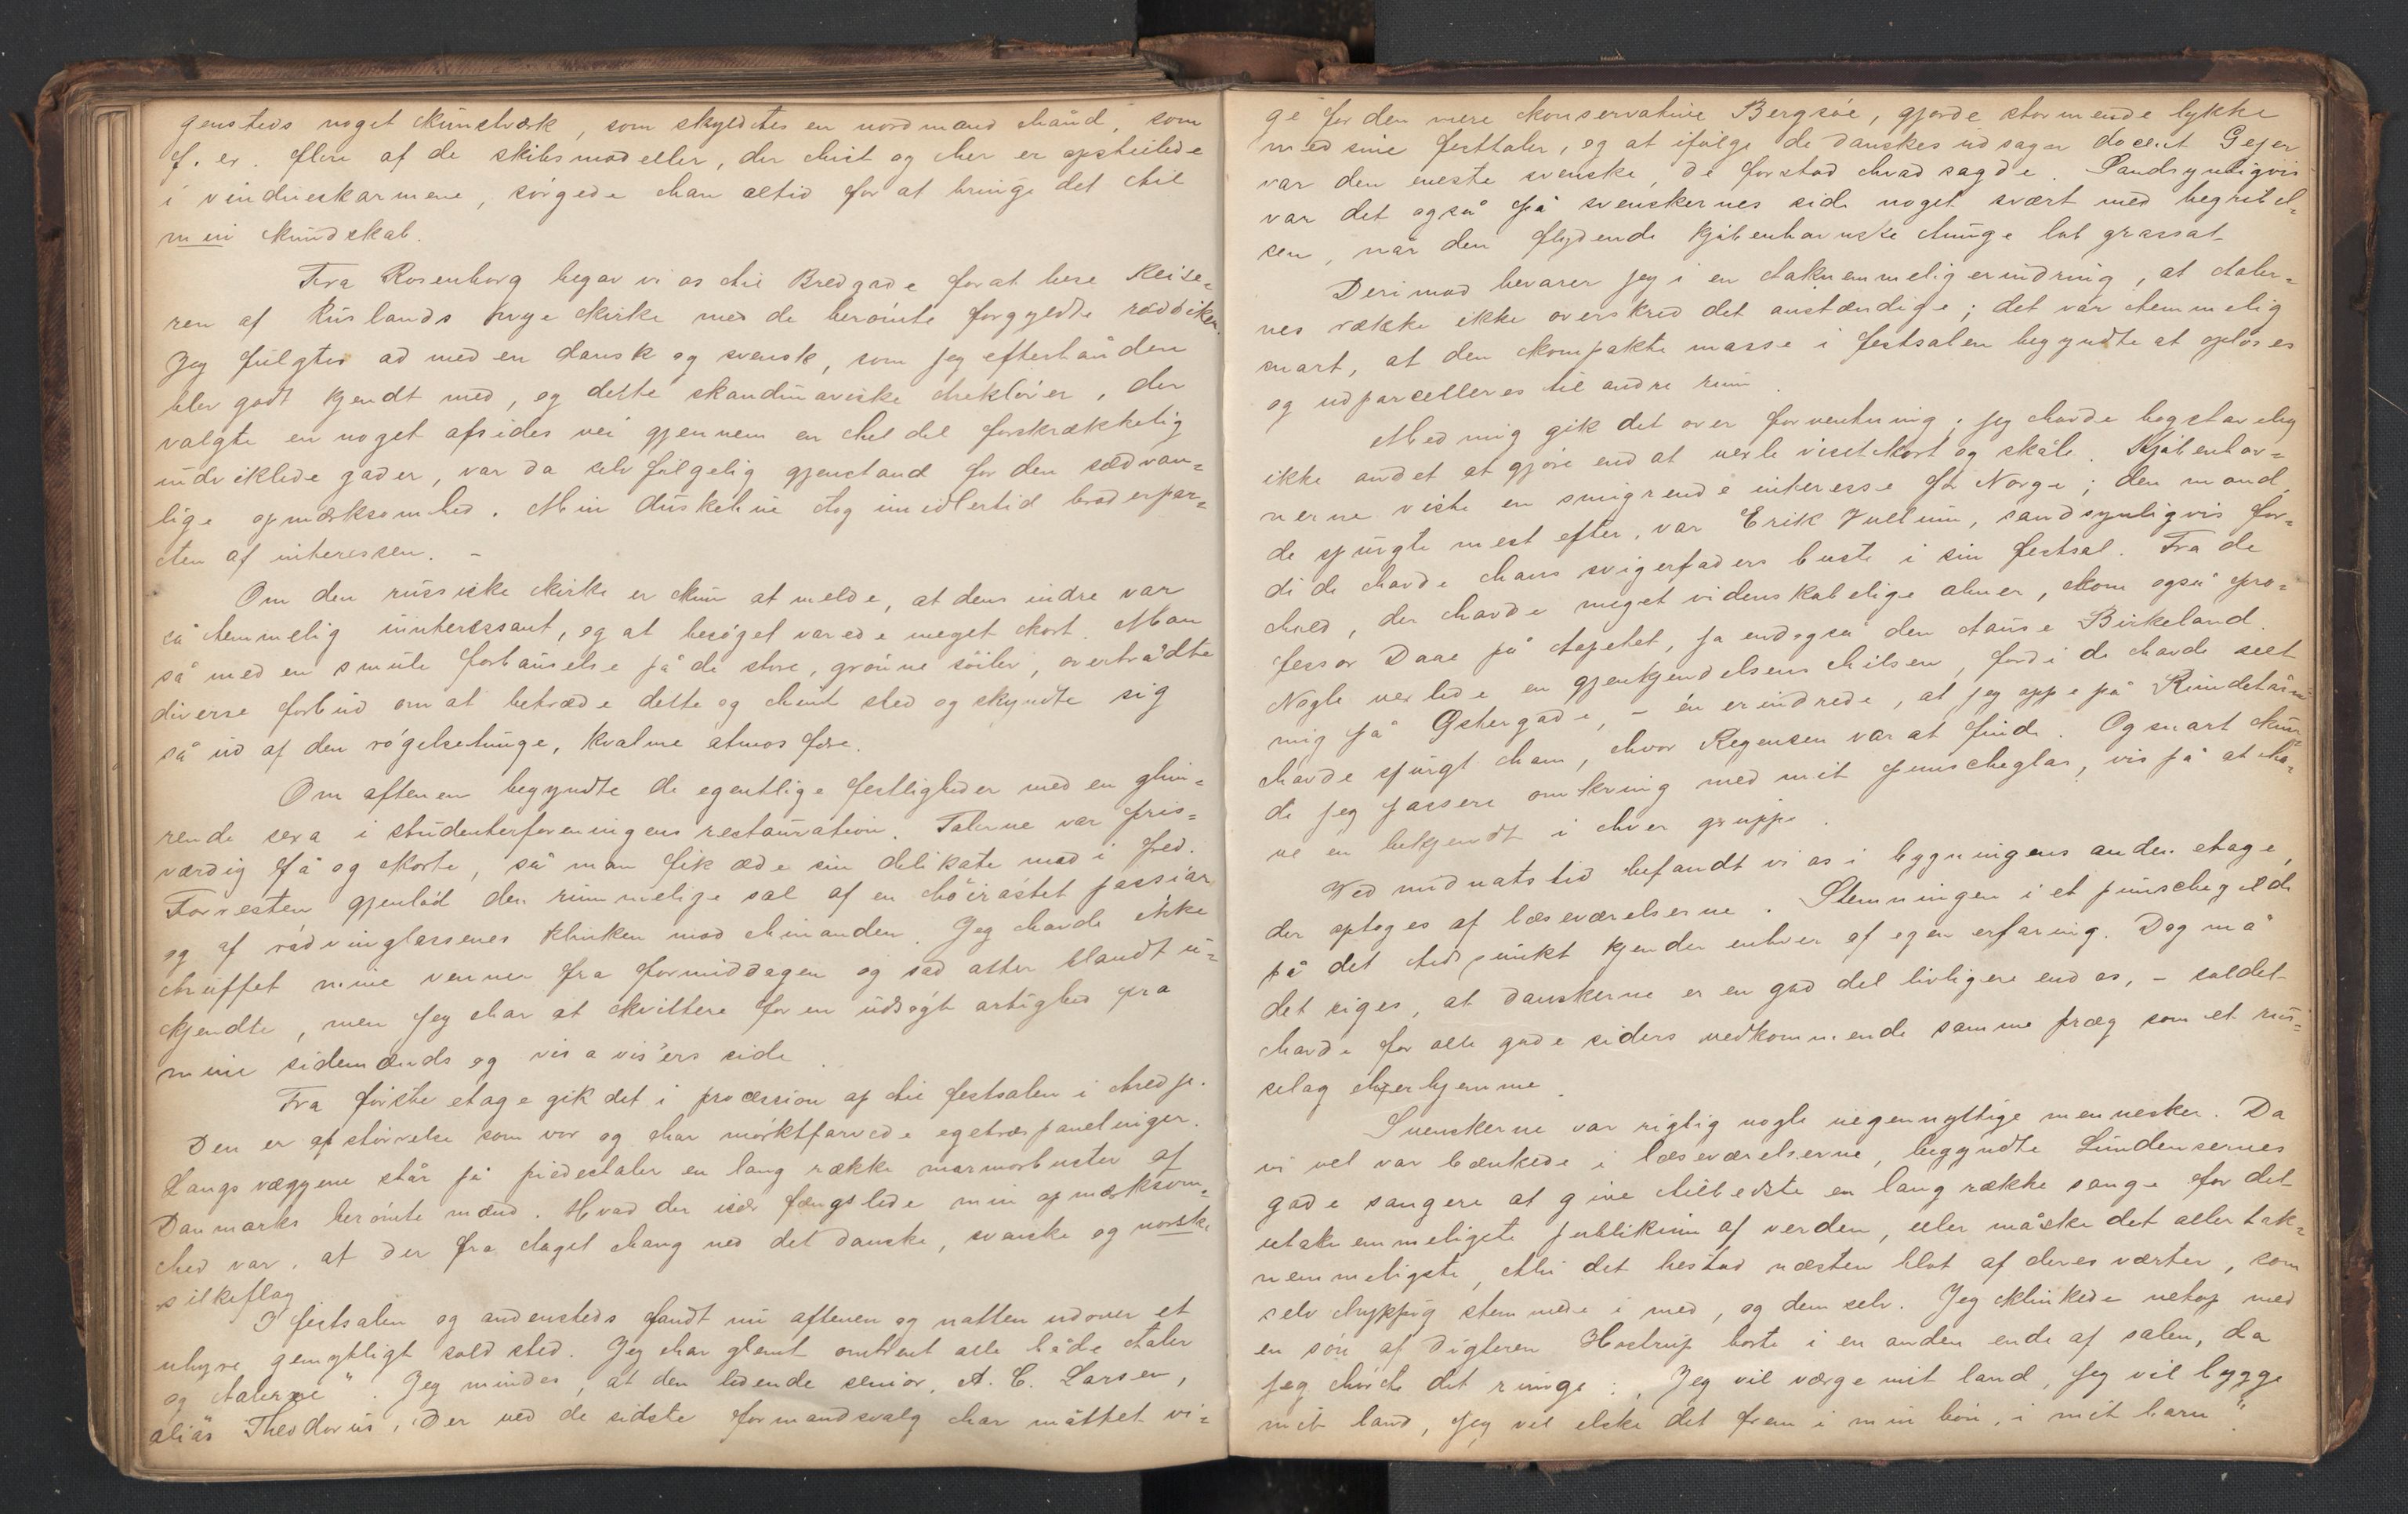 gensteds noget kunstværk, som skyldtes en nordmands hånd, som
f. ex. flere af de skibsmodeller, der hist og her er opstillede
i vindueskarmene, sørgede han altid for at bringe det til
min kundskab.
Fra Rosenborg begav vi os til Bredgade for at bese Keise-
ren af Ruslands nye kirke med de berømte forgyldte rødbiker.
Jeg fulgtes ad med en dansk og svensk, som jeg efterhånden
blev godt kjendt med, og dette skandinaviske trekløver, der
valgte en noget afsides vei gjennem en hel del forskrækkelig
indviklede gader, var da selvfølgelig gjenstand for den sædvan-
lige opmærksomhed. Min duskelue tog imidlertid broderpar-
ten af interessen. –
Om den russiske kirke er kun at melde, at dens indre var
så temmelig uinteressant, og at besøget varede meget kort. Man
så med en smule forbauselse på de store, grønne søiler, overtrådte
diverse forbud om at betræde dette og hint sted og skyndte sig
så ud af den røgelsetunge, kvalme atmosfære.
Om aftenen begyndte de egentlige festligheder med en glim-
rende sexa i studenterforeningens restauration. Talerne var pris-
værdig få og korte, så man fik æde sin delikate mad i fred.
Forresten gjenlød den rummelige sal af en høirøstet passiar
og af rødvinglassenes klinken mod hinanden. Jeg havde ikke
truffet mine venner fra formiddagen og sad atter blandt u-
kjendte, men jeg har at kvittere for en udsøgt artighed fra
mine sidemænds og vis a vis'ers side.
Fra første etage gik det i procession op til festsalen i tredje.
Den er af størrelse som vor og har mørktfarvede egetræspanelninger.
Langs væggene står på piedestaler en lang række marmorbuster af
Danmarks berømte mænd. Hvad der især fængslede min opmærksom-
hed var, at der fra taget hang ned det danske, svenske og norske
silkeflag.
I festsalen og andensteds fandt nu aftenen og natten udover et
uhyre gemytligt sold sted. Jeg har glemt omtrent alle både taler
og „talerne“. Jeg mindes, at den ledende senior, A. C. Larsen,
alias Theodorus, der ved de sidste formandsvalg har måttet vi-
ge for den mere konservative Bergsøe, gjorde stormende lykke
med sine festtaler, og at ifølge de danskes udsagn docent Gejer
var den eneste svenske, de forstod hvad sagde. Sandsynligvis
var det også på svenskernes side noget svært med begribel-
sen, når den flydende kjøbenhavnske tunge løb grassat.
Derimod bevarer jeg i en taknemmelig erindring, at taler-
nes række ikke overskred det anstændige; det var temmelig
snart, at den kompakte masse i festsalen begyndte at opløses
og udparcelleres til andre rum.
Med mig gik det over forventning; jeg havde bogstavelig
ikke andet at gjøre end at vexle visitkort og skåle. Kjøbenhav-
nerne viste en smigrende interesse for Norge; den mand,
de spurgte mest efter, var Erik Vullum, sandsynligvis for-
di de havde hans svigerfaders buste i sin festsal. Fra de
hold, der havde meget videnskabelige aner, kom også pro-
fessor Daae på tapetet, ja endogså den tause Birkeland.
Nogle vexlede en gjenkjendelsens hilsen, fordi de havde seet
mig på Østergade, – én erindrede, at jeg oppe på Rundetårn
havde spurgt ham, hvor Regensen var at finde. Og snart kun-
de jeg passere omkring med mit punscheglas, vis på at ha-
ve en bekjendt i hver gruppe.
Ved midnatstid befandt vi os i bygningens anden etage,
der optoges af læseværelserne. Stemningen i et punschegilde
på det tidspunkt kjender enhver af egen erfaring. Dog må
det siges, at danskerne er en god del livligere end os, – soldet
havde for alle gode siders vedkommende samme præg som et rus-
selag herhjemme.
Svenskerne var rigtig nogle uegennyttige mennesker. Da
vi vel var bænkede i læseværelserne, begyndte Lundensernes
gode sangere at give tilbedste en lang række sange for det
utaknemmeligste publikum af verden, eller måske det aller tak-
nemmeligste, thi det bestod næsten blot af deres værter, som
selv hyppig stemmede i med, og dem selv. Jeg klinkede netop med
en søn af digteren Hostrup borte i en anden ende af salen, da
jeg hørte det runge: „Jeg vil værge mit land, jeg vil bygge
mit land, jeg vil elske det frem i min bøn, i mit barn“